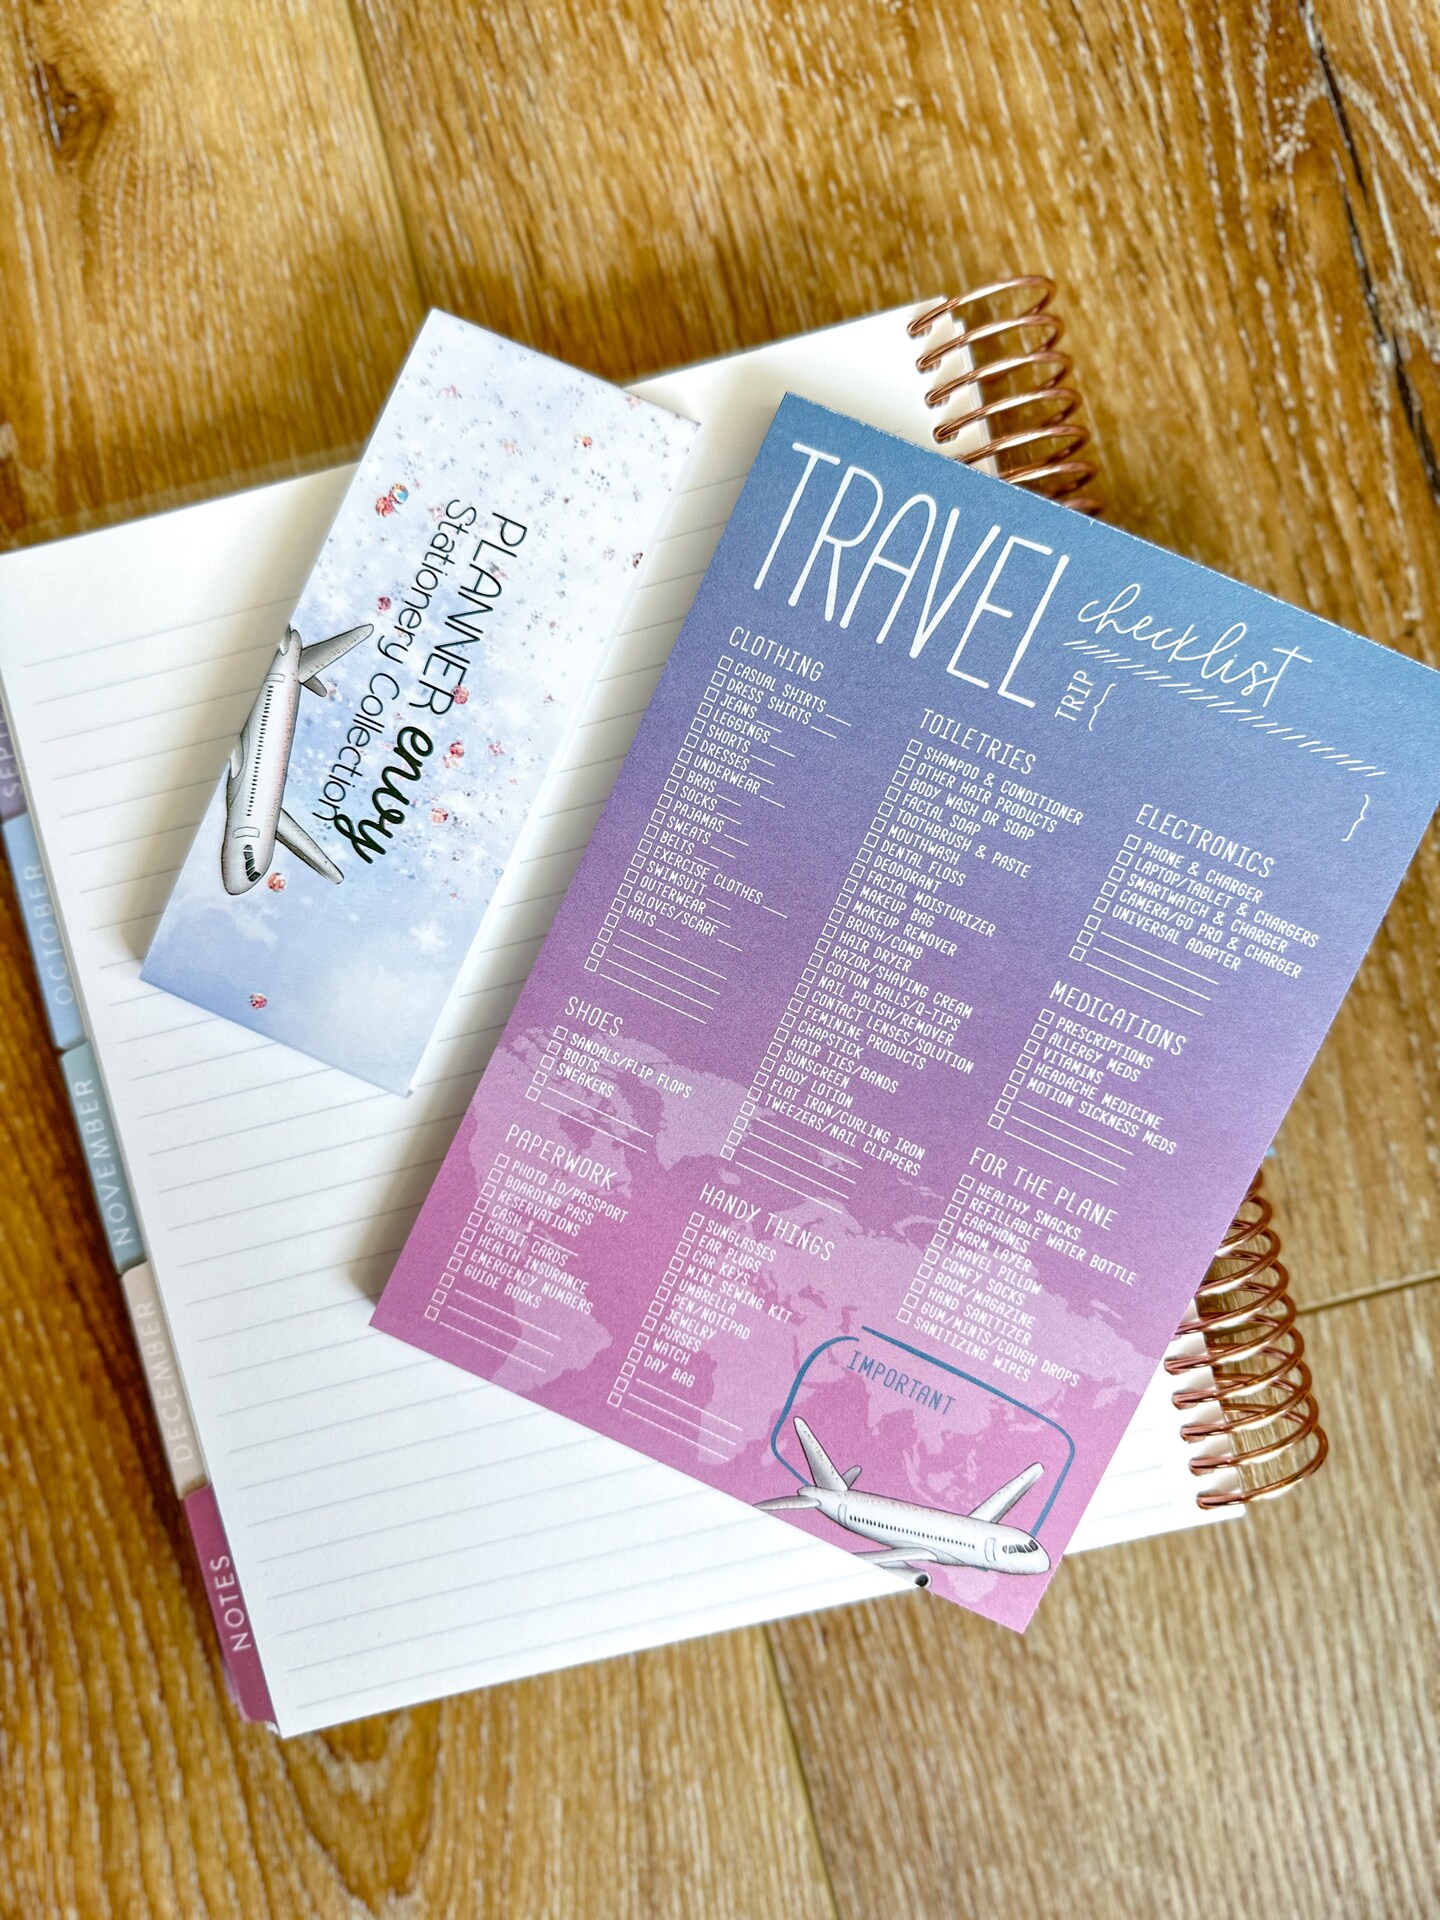 PLANNER envy
Stationery Collection
TRAVEL checklist
TRIP { }
CLOTHING
CASUAL SHIRTS
DRESS SHIRTS
JEANS
LEGGINGS
SHORTS
DRESSES
UNDERWEAR
BRAS
SOCKS
PAJAMAS
SWEATS
BELTS
EXERCISE CLOTHES
SWIMSUIT
OUTERWEAR
GLOVES/SCARF
HATS
SHOES
SANDALS/FLIP FLOPS
BOOTS
SNEAKERS
PAPERWORK
PHOTO ID/PASSPORT
BOARDING PASS
RESERVATIONS
CASH $
CREDIT CARDS
HEALTH INSURANCE
EMERGENCY NUMBERS
GUIDE BOOKS
TOILETRIES
SHAMPOO & CONDITIONER
OTHER HAIR PRODUCTS
BODY WASH OR SOAP
FACIAL SOAP
TOOTHBRUSH & PASTE
MOUTHWASH
DENTAL FLOSS
DEODORANT
FACIAL MOISTURIZER
MAKEUP BAG
MAKEUP REMOVER
BRUSH/COMB
HAIR DRYER
RAZOR/SHAVING CREAM
COTTON BALLS/Q-TIPS
NAIL POLISH/REMOVER
CONTACT LENSES/SOLUTION
FEMININE PRODUCTS
CHAPSTICK
HAIR TIES/BANDS
SUNSCREEN
BODY LOTION
FLAT IRON/CURLING IRON
TWEEZERS/NAIL CLIPPERS
HANDY THINGS
SUNGLASSES
EAR PLUGS
CAR KEYS
MINI SEWING KIT
UMBRELLA
PEN/NOTEPAD
JEWELRY
PURSES
WATCH
DAY BAG
ELECTRONICS
PHONE & CHARGER
LAPTOP/TABLET & CHARGERS
SMARTWATCH & CHARGER
CAMERA/GO PRO & CHARGER
UNIVERSAL ADAPTER
MEDICATIONS
PRESCRIPTIONS
ALLERGY MEDS
VITAMINS
HEADACHE MEDICINE
MOTION SICKNESS MEDS
FOR THE PLANE
HEALTHY SNACKS
REFILLABLE WATER BOTTLE
EARPHONES
WARM LAYER
TRAVEL PILLOW
COMFY SOCKS
BOOK/MAGAZINE
HAND SANITIZER
GUM/MINTS/COUGH DROPS
SANITIZING WIPES
IMPORTANT
OCTOBER
NOVEMBER
DECEMBER
NOTES